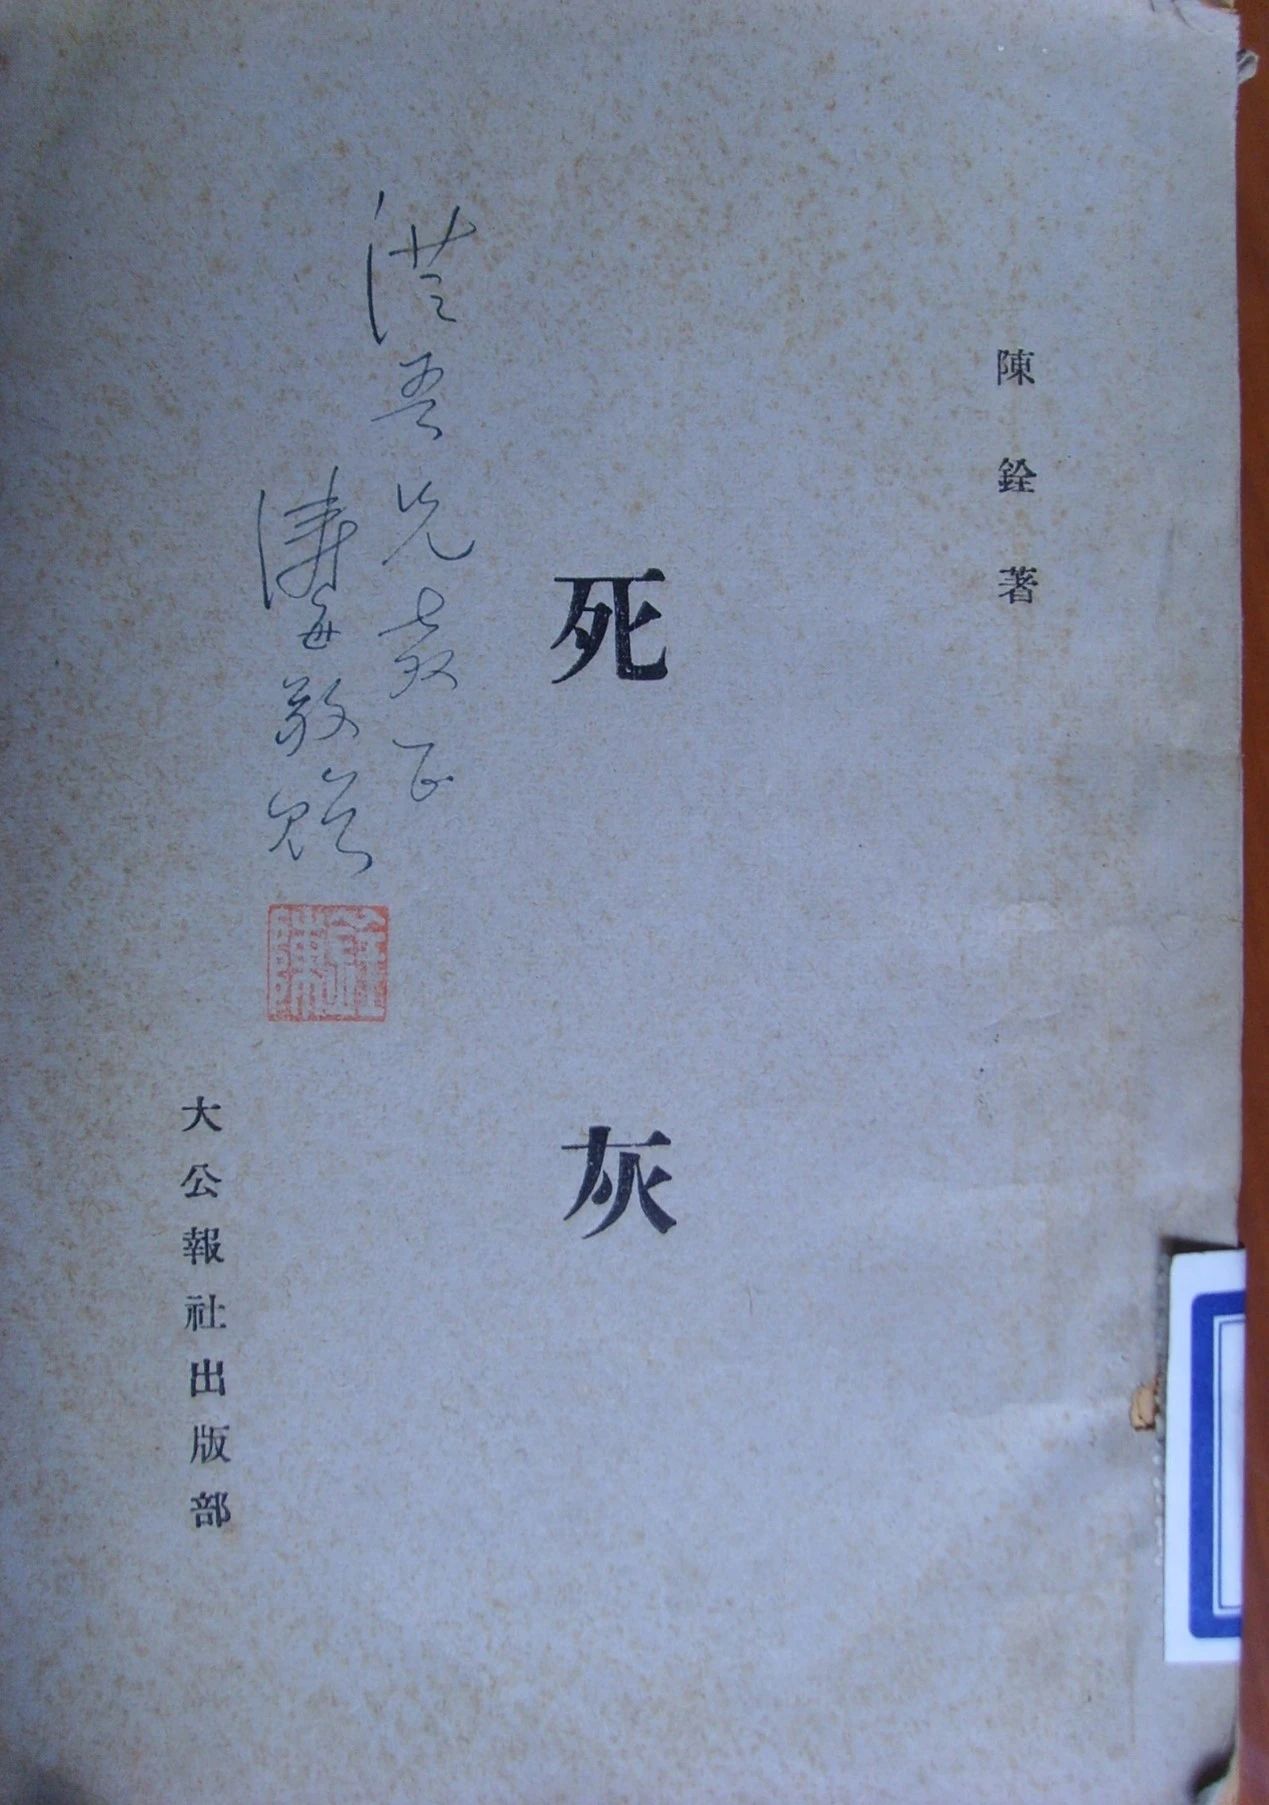 陳銓著
死灰
吾兄教正
濤西敬贈
陳銓
大公報社出版部